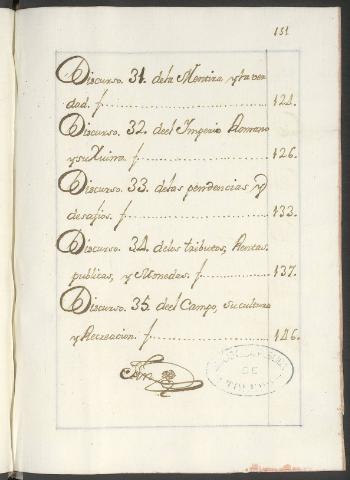 151
Discurso. 31. dela Mentira y la ver
dad. f. 124.
Discurso. 32. deel Imperio Romano
y su Ruina. f. 126.
Discurso. 33. delas pendencias y
desafios. f. 133.
Discurso. 34. delos tributos, Rentas
publicas, y Monedas. f. 137.
Discurso. 35. deel Campo, su cultura
y Recreacion. f. 146.
Fin
DE